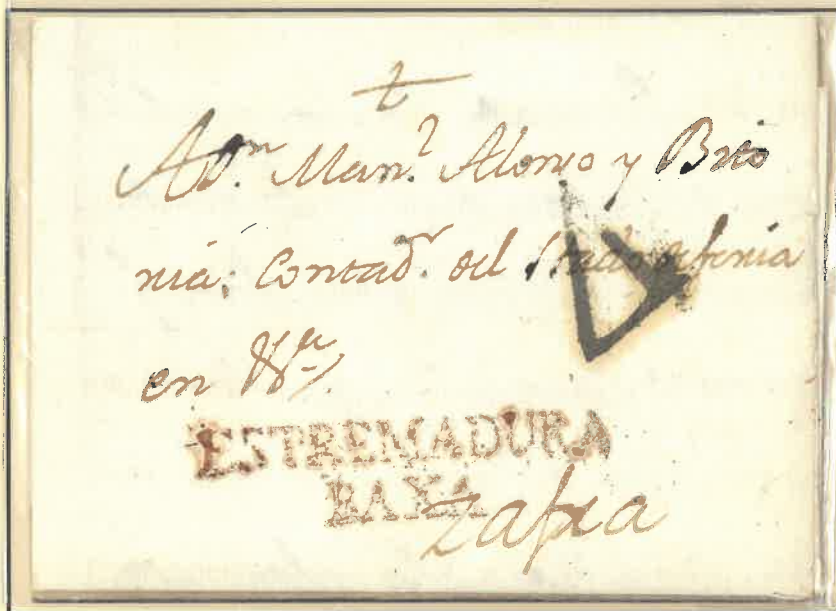 A Dn. Manl. Alonso y Brio
nia, Contador. del
en
ESTREMADURA
BAXA
Zafra